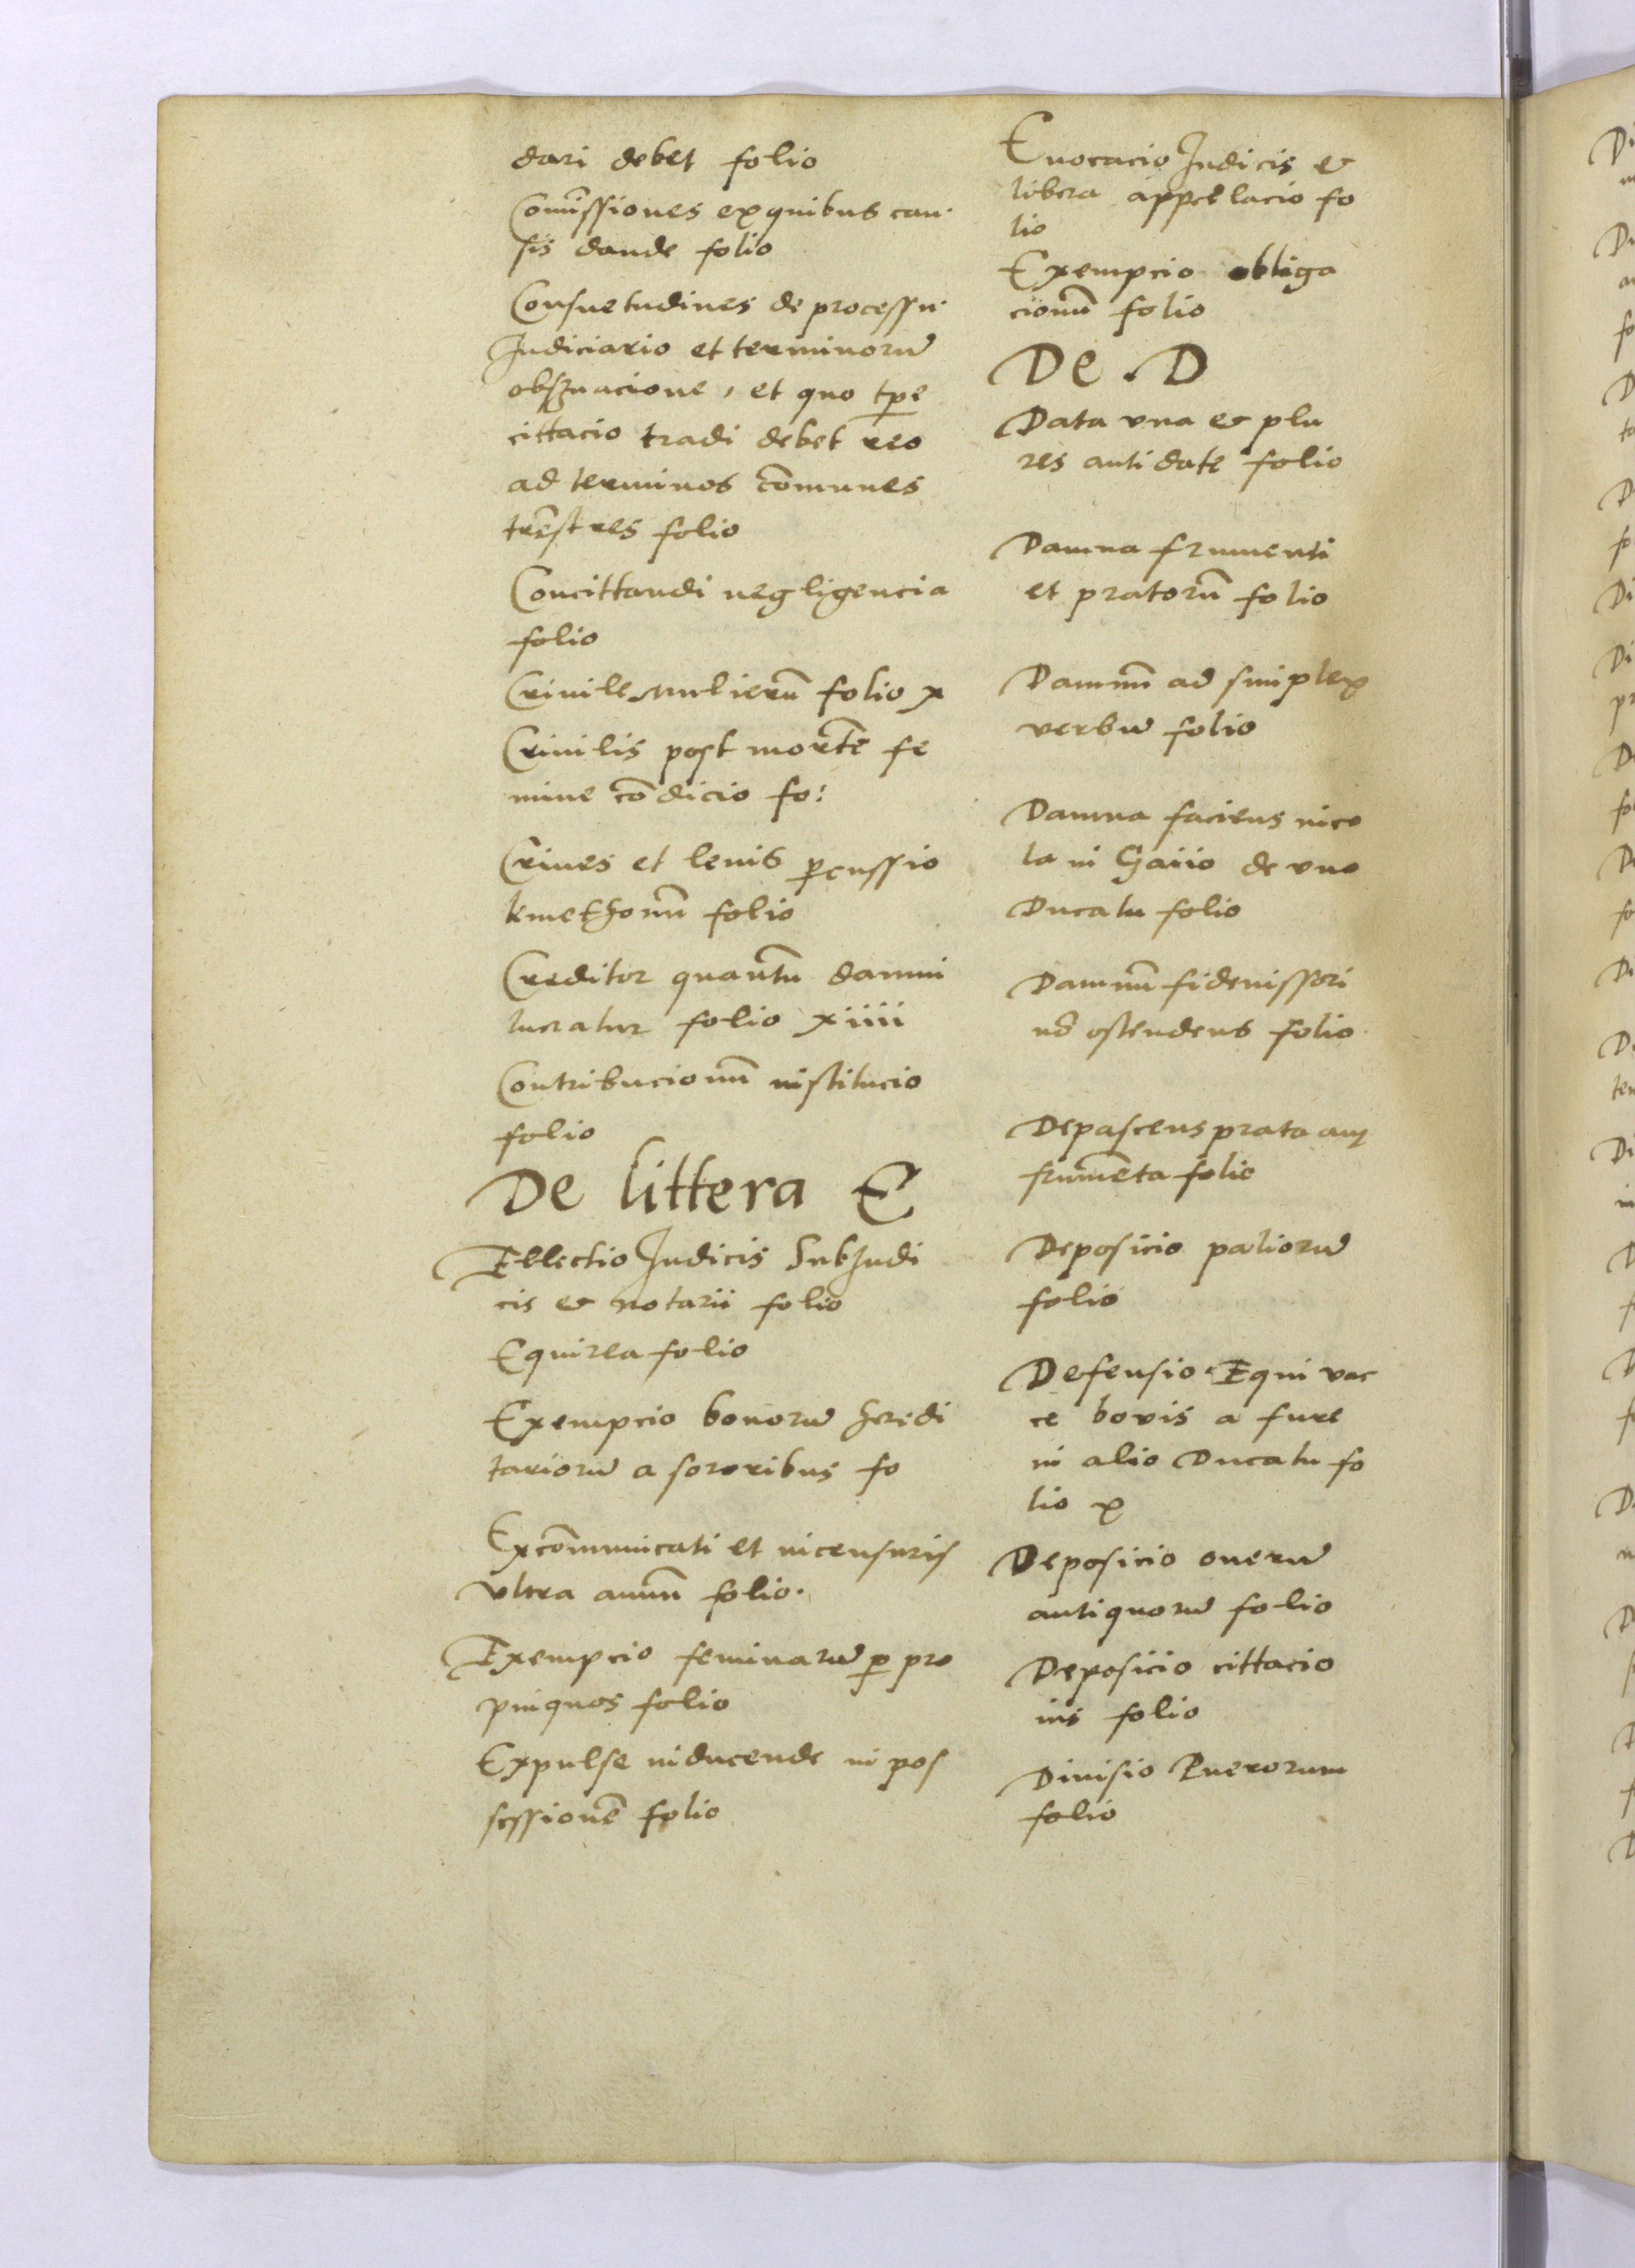 dari debet folio
Comissiones ex quibus cau
sis dande folio
Consuetudines de processu
Judiciario et terminorum
obseruacione, et quo tpe
cittacio tradi debet reo
ad terminos comunes
trestres folio
Concittandi negligencia
folio
Crinile mulierum folio x
Crinilis post morte fe
mine condicio fo:
Crines et lenis percussio
kmethonum folio
Creditor quantum damni
lucratur folio xiiii
Contribucionum institucio
folio
De littera E
Ellectio Judicis SubJudi
cis et notarii folio
Equirea folio
Exempcio bonorum heredi
tariorum a sororibus fo
Excommunicati et in censuris
vltra annum folio.
Exempcio feminarum per pro
pinquos folio
Expulse inducende in pos
sessione folio
Euocacio Judicis et
libera appellacio fo
lio
Exempcio obliga
cionum folio
De . D
Data vna et plu
res antidate folio
Damna frumenti
et pratorum folio
Damnum ad simplex
verbum folio
Damna faciens
in Gaiio de vno
Ducatu folio
Damnum fideiussori
non ostendens folio
Depascens prata
frumenta folio
Deposicio paliorum
folio
Defensio Equi vac
ce bovis a fure
in alio Ducatu fo
lio x
Deposicio onerum
antiquorum folio
Deposicio cittacio
nis folio
Diuisio Puerorum
folio